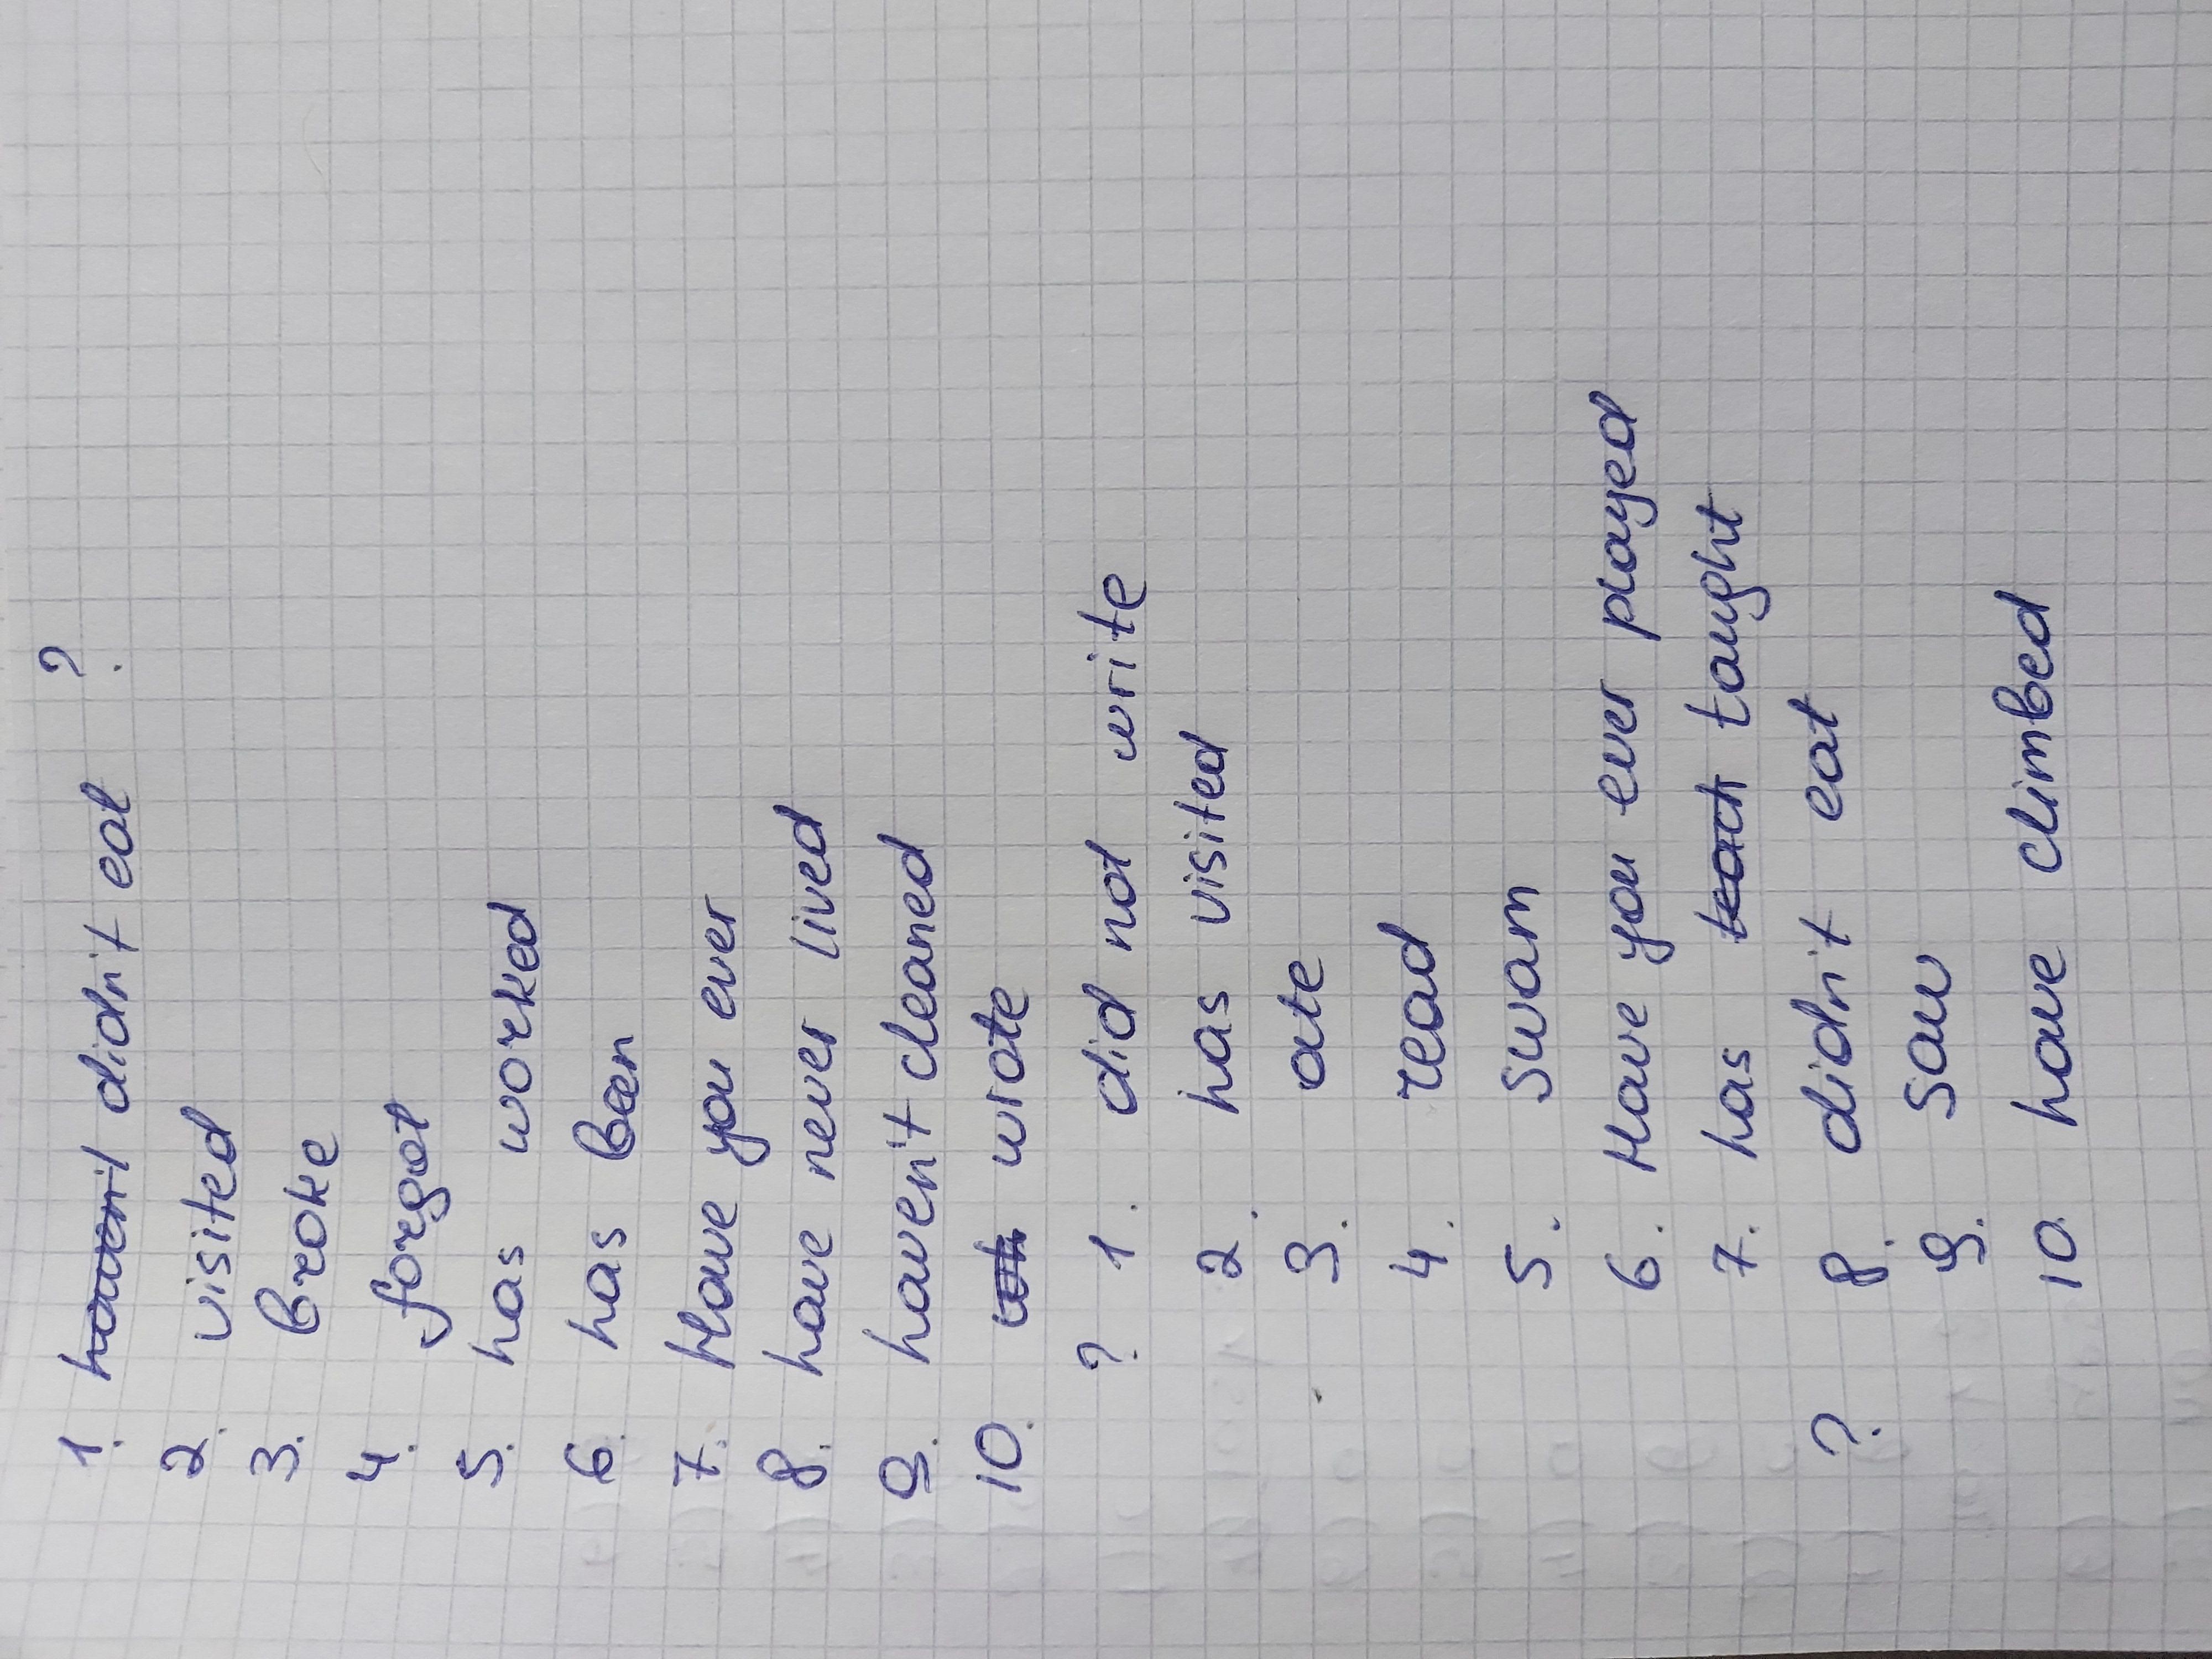 1. haven't didn't eat ?
2. visited
3. broke
4. forgot
5. has worked
6. has been
7. Have you ever
8. have never lived
9. haven't cleaned
10. wrote
? 1. did not write
2. has visited
3. ate
4. read
5. swam
6. Have you ever played
7. has teach taught
? 8. didn't eat
9. saw
10. have climbed